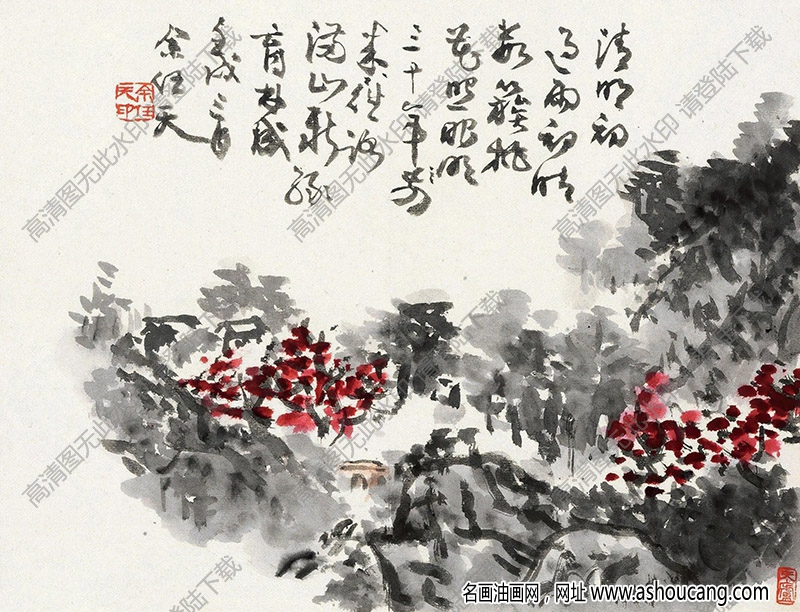 清明初
過雨初晴
數簇桃
花照眼明
三十年前
来路
滿山新綠
育林成
壬戌三月
余任天
余任天印
天廬
高清图无此水印 请登陆下载
高清图无此水印 请登陆下载
高清图无此水印 请登陆下载
高清图无此水印 请登陆下载
高清图无此水印 请登陆下载
高清图无此水印 请登陆下载
名画油画网，网址 www.ashoucang.com